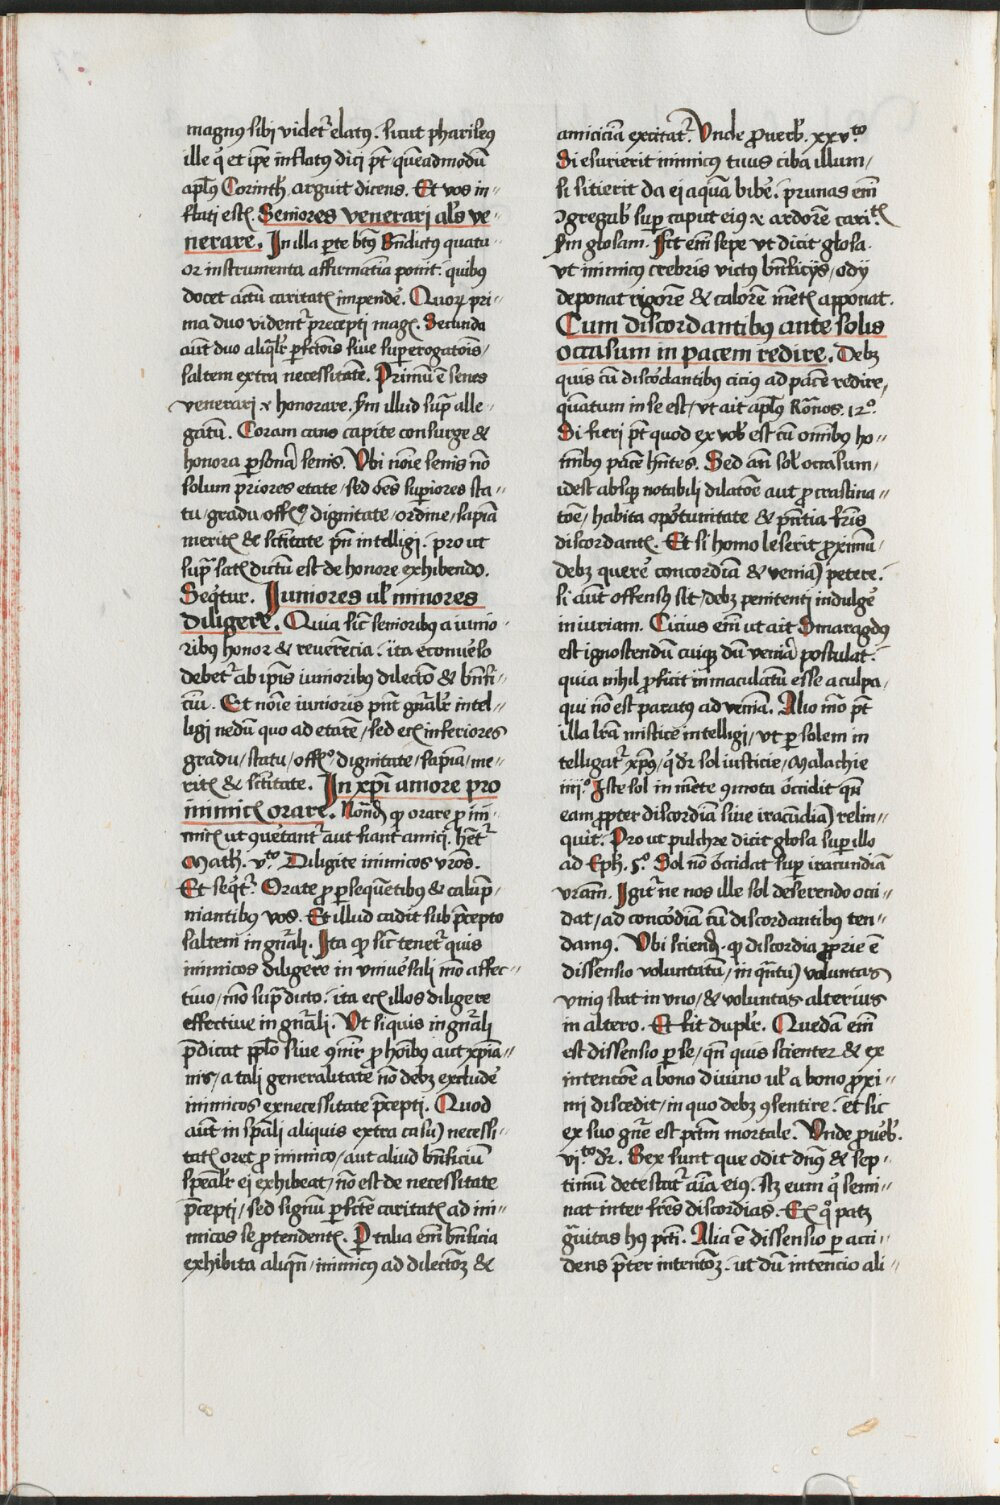 magnꝰ sibi videt᷑ elatꝰ. sicut phariseꝰ
ille q̄ et ip̄e inflatꝰ dici p̄t quēadmodū
ap̄lꝰ Corinth̄. arguit dicens. Et vos in〃
flati estꝭ. Seniores venerari al̄s ve〃
nerare. In illa p̱te btūs Bn̄dictꝰ quatu〃
or instrumenta affirmatīa ponit. quibꝯ
docet actū caritatꝭ impendē. Quoꝝ pri〃
ma duo vident᷑ p̄cepti magꝭ. Secunda
aūt duo aliqͣlr̄ p̱fctōis siue suꝑerogatōis/
saltem extra necessitatē. Primū ē senes
venerari ⁊ honorare. s̄m illud sup̄ alle〃
gatū. Coram cano capite consurge &
honora ꝑsonā senis. Vbi noīe senis nō
solum p̄riores etate/sed oēs suꝑiores sta〃
tu/gradu/offᵒ/dignitate/ordine/sapīa
meritꝭ & sctītate pn̄t intelligi. prout
sup̄ satꝭ dictū est de honore exhibendo.
Seqͥtur. Iuniores ul̄ minores
diligere. Quia sic̄ senioribꝯ a iunio〃
ribꝯ honor & reuerēcia. ita ecōuerso
debet᷑ ab ip̄is iunioribꝯ dilectō & bn̄fi〃
ciū. Et noīe iunioris pn̄t gn̄alr̄ intel〃
ligi nedū quo ad etatē/sed ecꝭ inferiores
gradu/statu/offᵒ/dignitate/sapīa/me〃
ritꝭ & sctītate. In xp̄i amore pro
inimicꝭ orare. Nōnd̄ ꝙ orare p̱ ini〃
micꝭ ut ꝯuertant᷑ aut fiant amici. hēt᷑
Math̄. vᵗᵒ. Diligite inimicos vr̄os.
Et seqͥt᷑. Orate ꝓ ꝑsequētibꝯ & calūp〃
niantibus vos. Et illud cadit sub p̄cepto
saltem in gn̄ali. Ita ꝙ sic̄ tenet᷑ quis
inimicos diligere in vniuersali mō affec〃
tiuo/mō supᵃdicto. ita ecꝭ illos diligere
effectiue in gn̄ali. Vt si quis in gn̄ali
p̄dicat pp̄lo siue ꝯīr ꝓ hoībꝯ aut xp̄ia〃
nis/a tali generalitate nō debꝫ excludē
inimicos ex necessitate p̄cepti. Quod
aūt in sp̄ali aliquis extra casū necessi〃
tatꝭ oret ꝓ inimico/aut aliud bn̄ficiū
speālr̄ ei exhibeat/nō est de necessitate
p̄cepti/sed signū ꝑfctē caritatꝭ ad ini〃
micos se protendentꝭ. Ꝑ talia em̄ bn̄ficia
exhibita aliqn̄/inimicꝰ ad dilectōꝫ &
amiciciā excitat᷑. Vnde ꝓuerb̄. xxvᵗᵒ
Si esurierit inimicꝰ tuus ciba illum/
si sitierit da ei aquā bibē. prunas em̄
ꝯgregab̄ suꝑ caput eiꝰ ⁊ ardorē caritꝭ
s̄m glosam. Fit em̄ sepe vt dicit glosa.
vt inimicꝰ crebris victꝰ bn̄ficijs/odij
deponat rigorē & calorē mētꝭ apponat.
Cum discordantibꝯ ante solis
occasum in pacem redire. Debꝫ
quis cū discordantibꝯ cicius ad pacē redire,
quātum in se est/vt ait ap̄lꝰ Rōnos. 12ᵒ.
Si fieri p̄t quod ex vob̄ est cū oīnibꝯ ho〃
mībꝯ pacē hn̄tes. Sed an̄ sol̄ occasum/
idest absqꝫ notabili dilatōe aut ꝓcrastina〃
tōe/habita oportunitate & pn̄tia fr̄is
discordantꝭ. Et si homo leserit ꝓximū/
debꝫ querē concordiā & veniā petere.
si aūt offensꝰ sit/debꝫ penitenti indulgē
iniuriam. Cicius em̄ ut ait Smaragdꝰ
est ignoscendū cuiqꝫ dū veniā postulat.
quia nihil ꝓficit immaculatū esse a culpa/
qui nō est paratus ad veniā. Alio mō p̄t
illa lr̄a mistice intelligi/vt ꝑ solem in
telligat᷑ xp̄ꝰ/q̄ dr̄ sol iusticie/Malachie
iiijᵒ. Iste sol in mēte ꝯmota occidit qn̄
eam ꝓpter discordiā siue iracūdiā relin〃
quit. Prout pulchre dicit glosa suꝑ illo
ad Eph̄. 5ᵒ. Sol nō occidat suꝑ iracundiā
vr̄am. Igit᷑ ne nos ille sol deserendo occi〃
dat/ad concordiā cū discordantibꝯ ten〃
damꝰ. Vbi sciend̄. ꝙ discordia ꝓprie ē
dissensio voluntatū/in qͣntū voluntas
vniꝰ stat in vno/& voluntas alterius
in altero. Et fit duplr̄. Quedā em̄
est dissensio ꝑ se/qn̄ quis scienter & ex
intencōe a bono diuino ul̄ a bono ꝓxi〃
mi discedit/in quo debꝫ ꝯsentire. et sic
ex suo gn̄e est pctm̄ mortale. Vnde ꝓuerb̄.
vjᵗᵒ dr̄. Sex sunt que odit dn̄s & sep〃
timū detestat᷑ aīa eiꝰ. scꝫ eum qͥ semi〃
nat inter fr̄es discordias. Ex qͦ patꝫ
gͣuitas hꝰ pcti. Alia ē dissensio ꝑ acci〃
dens p̄ter intentōꝫ. ut dū intencio ali〃